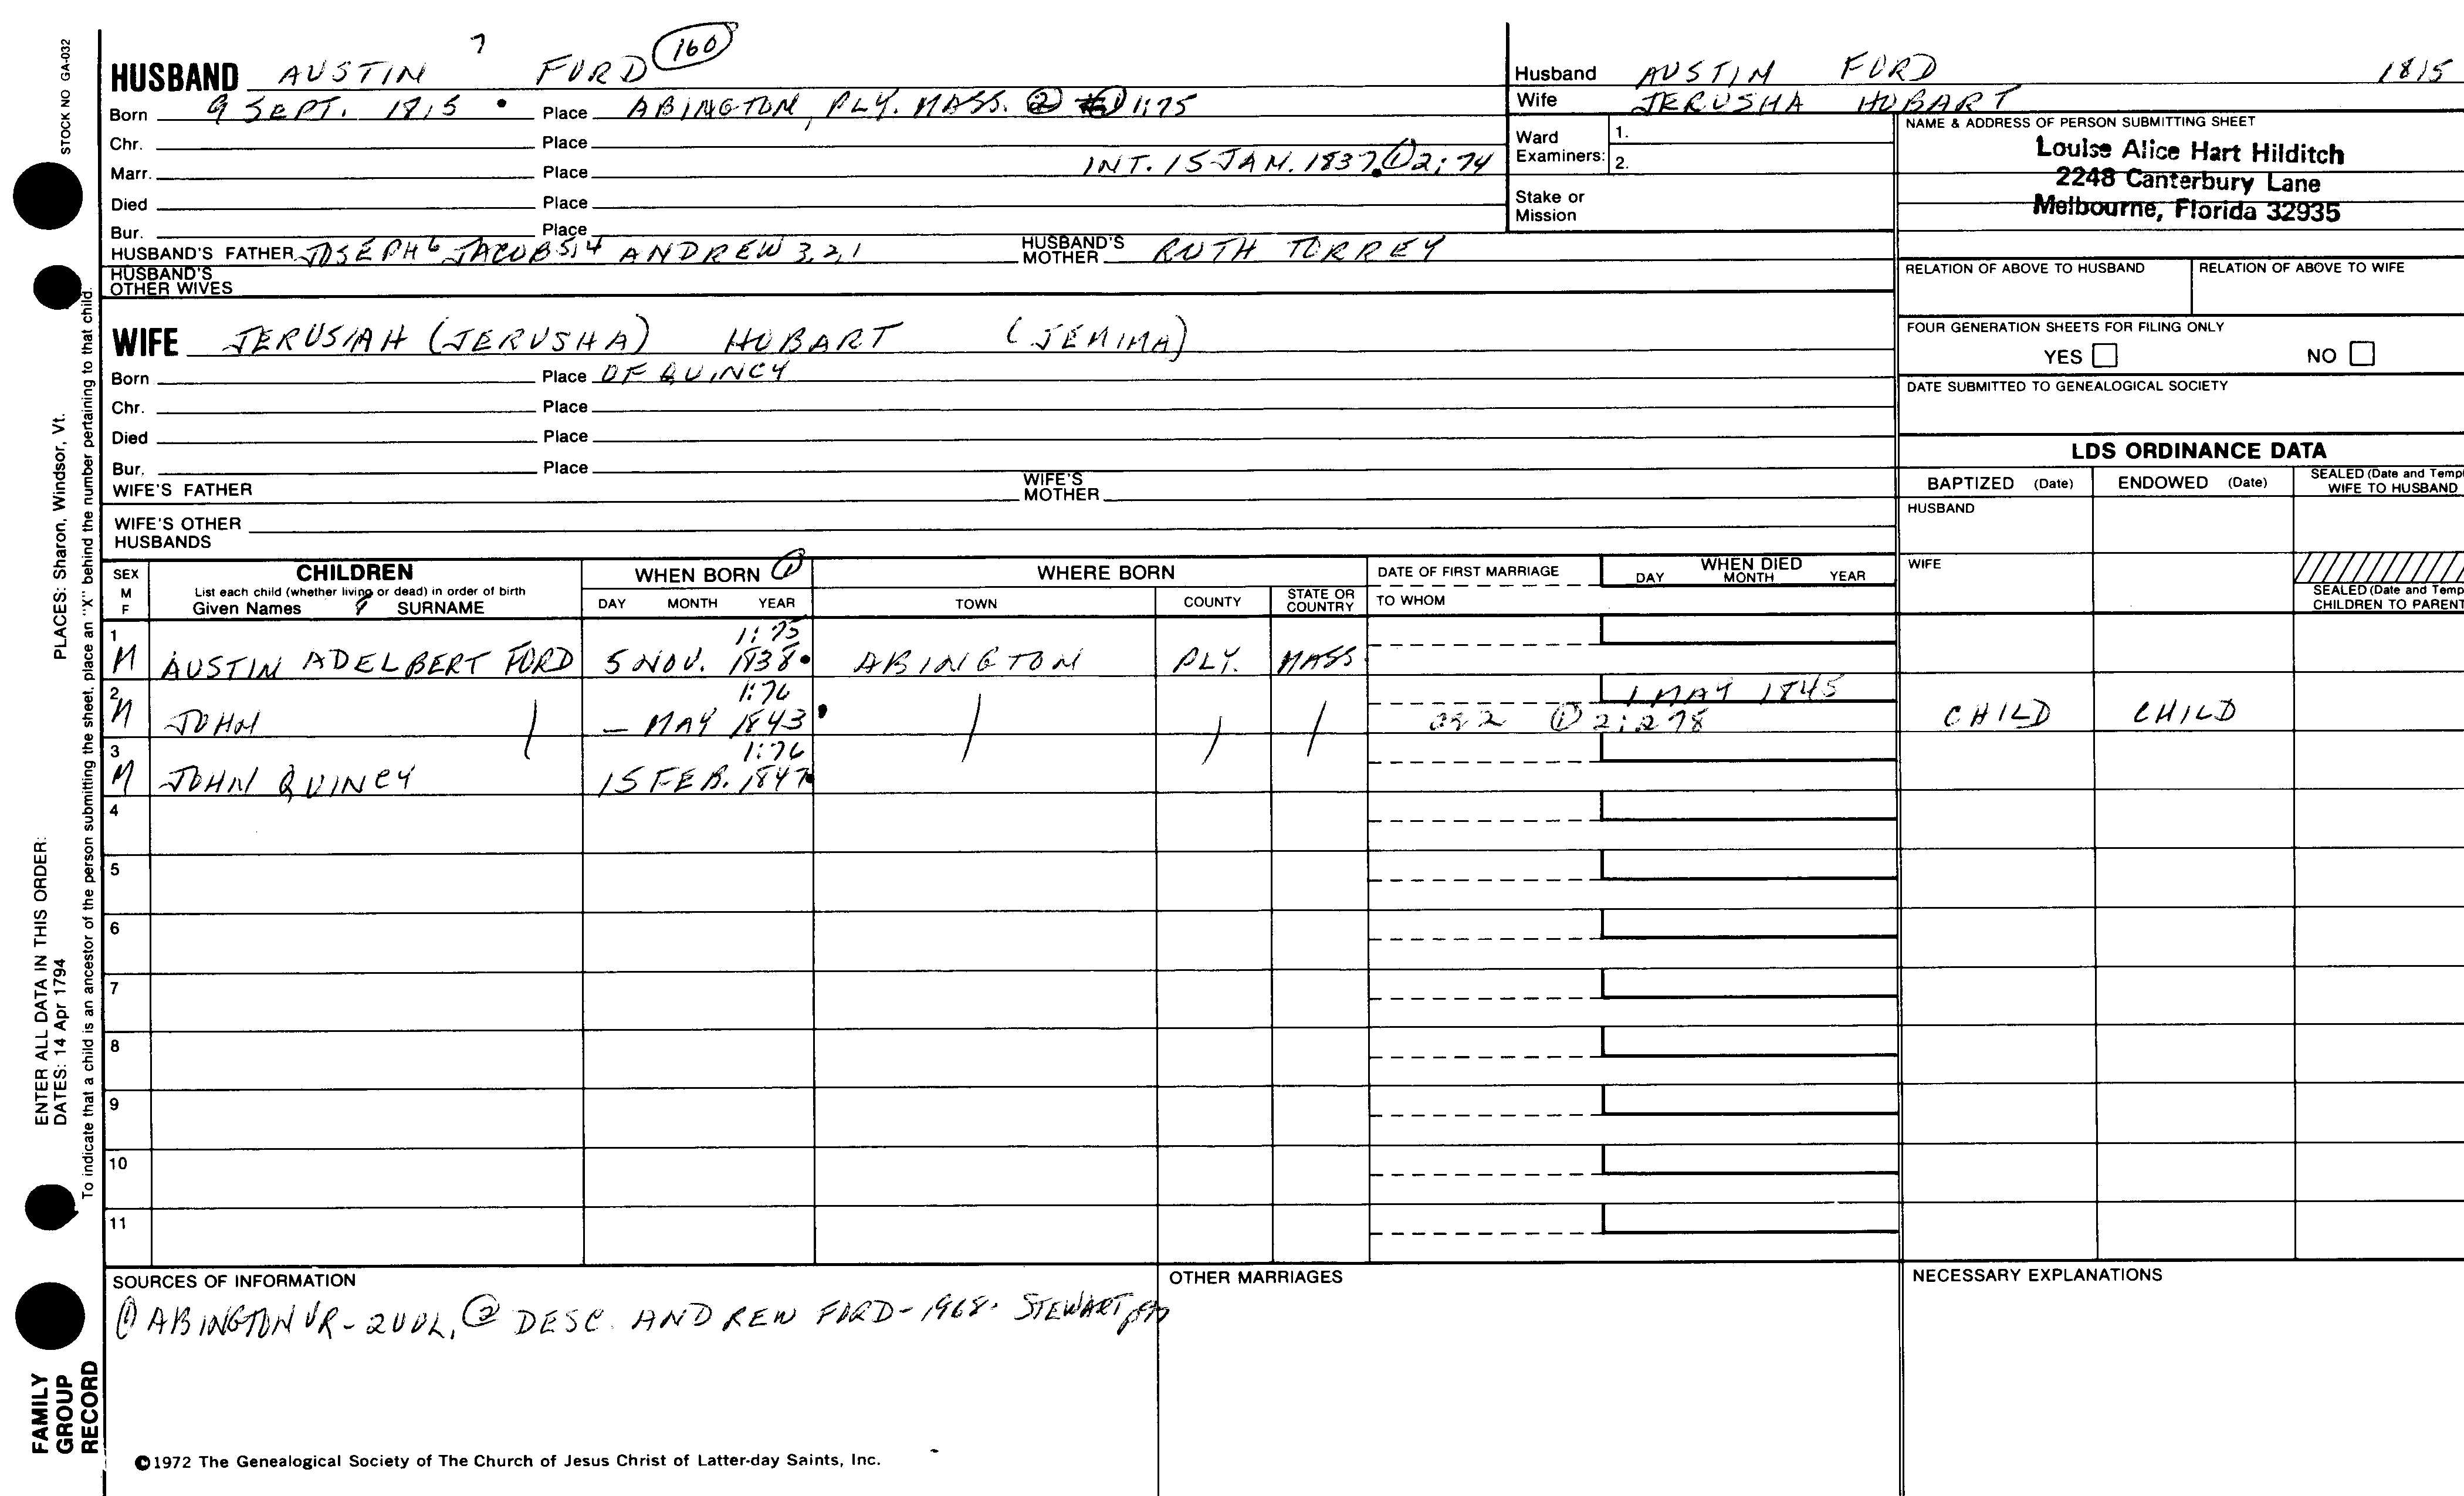 STOCK NO GA-032
HUSBAND AUSTIN 7 FORD 160
Born 9 SEPT. 1815 • Place ABINGTON, PLY. MASS. ② 1:75
Chr. Place
Marr. Place INT. 15 JAN. 1837 ① 2:74
Died Place
Bur. Place
HUSBAND'S FATHER JOSEPH 6 JACOB 5,4 ANDREW 3,2,1 HUSBAND'S MOTHER RUTH TORREY
HUSBAND'S OTHER WIVES
WIFE JERUSIAH (JERUSHA) HOBART (JEMIMA)
Born Place OF QUINCY
Chr. Place
Died Place
Bur. Place
WIFE'S FATHER WIFE'S MOTHER
WIFE'S OTHER HUSBANDS
Husband AUSTIN FORD 1815
Wife JERUSHA HOBART
Ward Examiners: 1.
2.
Stake or Mission
NAME & ADDRESS OF PERSON SUBMITTING SHEET
Louise Alice Hart Hilditch
2248 Canterbury Lane
Melbourne, Florida 32935
RELATION OF ABOVE TO HUSBAND RELATION OF ABOVE TO WIFE
FOUR GENERATION SHEETS FOR FILING ONLY
YES NO
DATE SUBMITTED TO GENEALOGICAL SOCIETY
LDS ORDINANCE DATA
BAPTIZED (Date) ENDOWED (Date) SEALED (Date and Templ
WIFE TO HUSBAND
HUSBAND
WIFE
SEALED (Date and Temp
CHILDREN TO PARENT
SEX M F CHILDREN WHEN BORN ① WHERE BORN DATE OF FIRST MARRIAGE WHEN DIED
List each child (whether living or dead) in order of birth
Given Names 8 SURNAME DAY MONTH YEAR TOWN COUNTY STATE OR COUNTRY TO WHOM DAY MONTH YEAR
1 1:75
M AUSTIN ADELBERT FORD 5 NOV. 1838 • ABINGTON PLY. MASS.
2 1:76 1 MAY 1845
M JOHN — MAY 1843 • ag 2 ① 2:278 CHILD CHILD
3 1:76
M JOHN QUINCY 15 FEB. 1847
4
5
6
7
8
9
10
11
SOURCES OF INFORMATION OTHER MARRIAGES NECESSARY EXPLANATIONS
① ABINGTON VR - 2 VOL. ② DESC. ANDREW FORD - 1968. STEWART
©1972 The Genealogical Society of The Church of Jesus Christ of Latter-day Saints, Inc.
PLACES: Sharon, Windsor, Vt.
ENTER ALL DATA IN THIS ORDER:
DATES: 14 Apr 1794
To indicate that a child is an ancestor of the person submitting the sheet, place an "X" behind the number pertaining to that child.
FAMILY
GROUP
RECORD